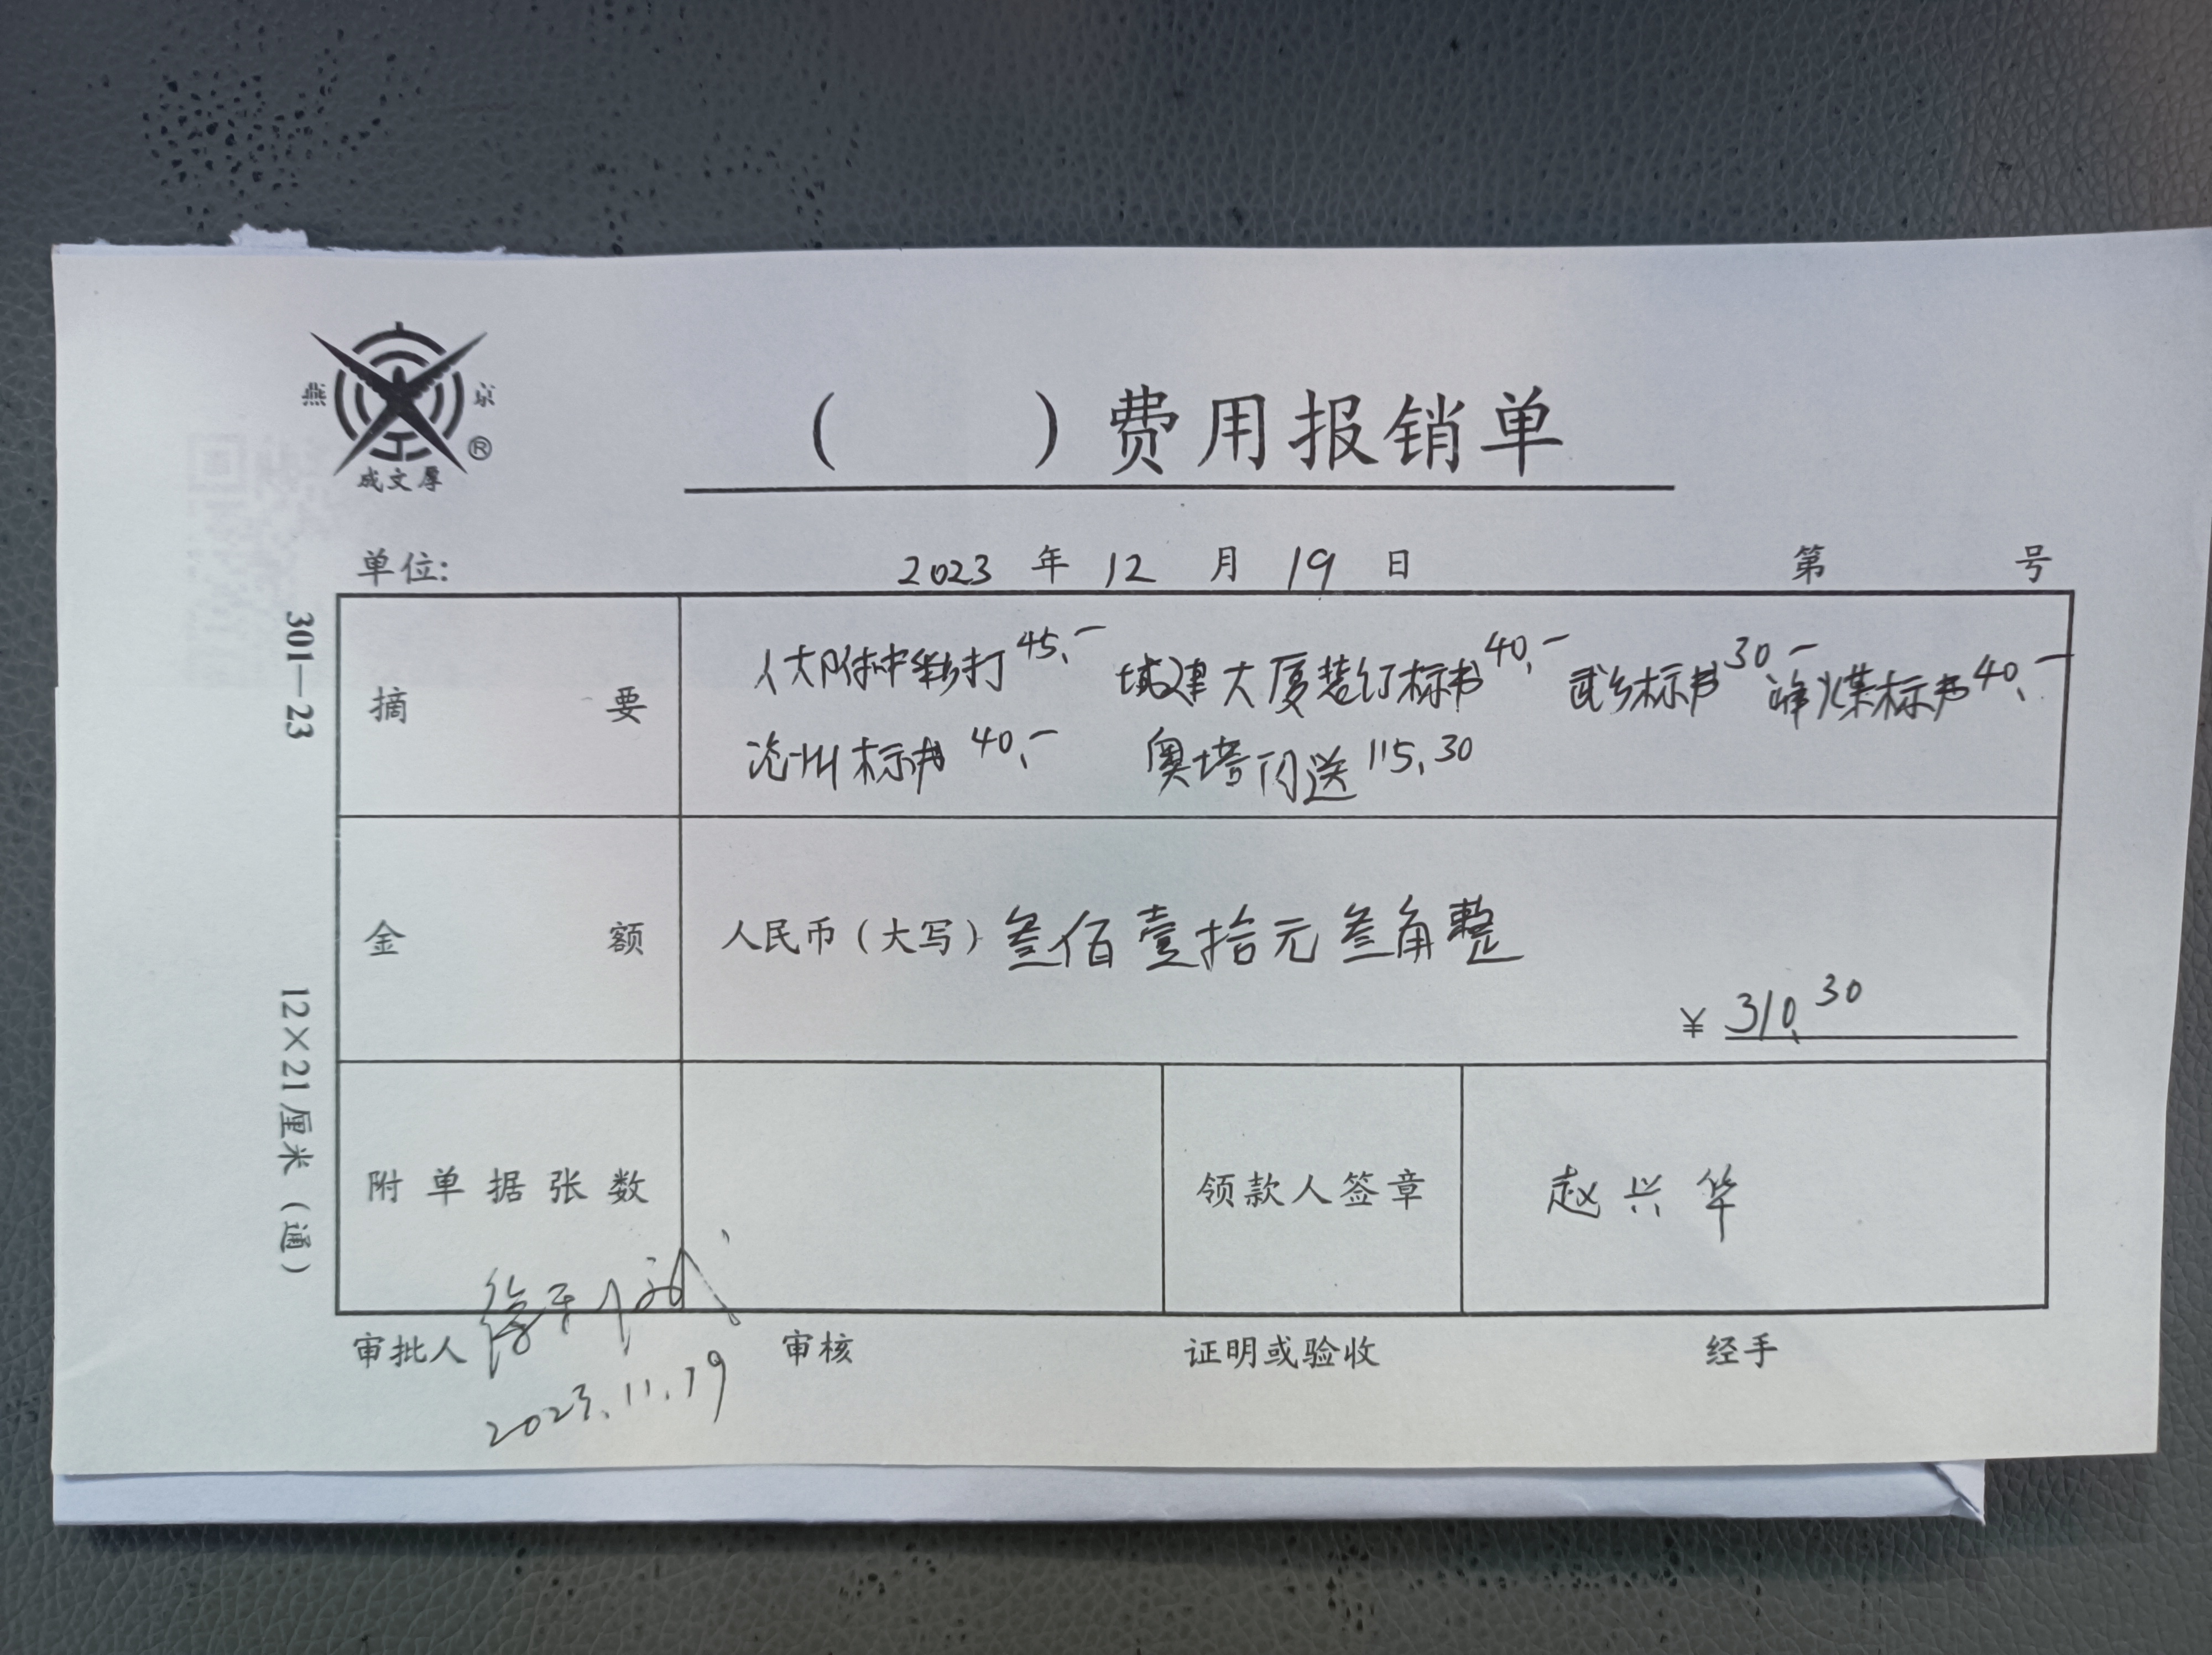 燕 京
®
成文厚
( ) 费用报销单
单位: 2023 年 12 月 19 日 第 号
301—23
12×21厘米（通）
摘 要
人大附中彩打45.- 城建大厦装订标书40.- 武乡标书30.- 峰煤标书40.-
沧州标书40.- 奥塔闪送115.30
金 额
人民币（大写）叁佰壹拾元叁角整
¥ 310.30
附单据张数
领款人签章 赵兴华
审批人 审核 证明或验收 经手
2023.11.19